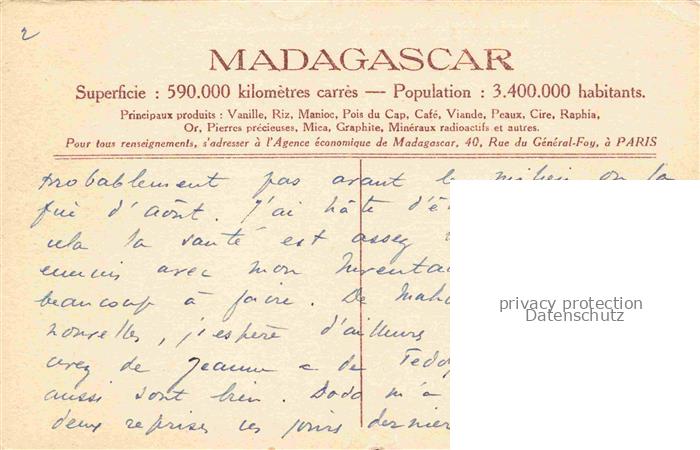 2
MADAGASCAR
Superficie : 590.000 kilomètres carrès — Population : 3.400.000 habitants.
Principaux produits : Vanille, Riz, Manioc, Pois du Cap, Café, Viande, Peaux, Cire, Raphia,
Or, Pierres précieuses, Mica, Graphite, Minéraux radioactifs et autres.
Pour tous renseignements, s'adresser à l'Agence économique de Madagascar, 40, Rue du Général-Foy, à PARIS
probablement pas avant le milieu ou la
fin d'août. J'ai hâte d'ê
cela la santé est assez
ennuis avec mon
beaucoup à faire. De
nouvelles, j'espère d'ailleurs
avez de Jeanne de
aussi sont bien. Dodo m'a
deux reprises ces jours dernier
privacy protection
Datenschutz